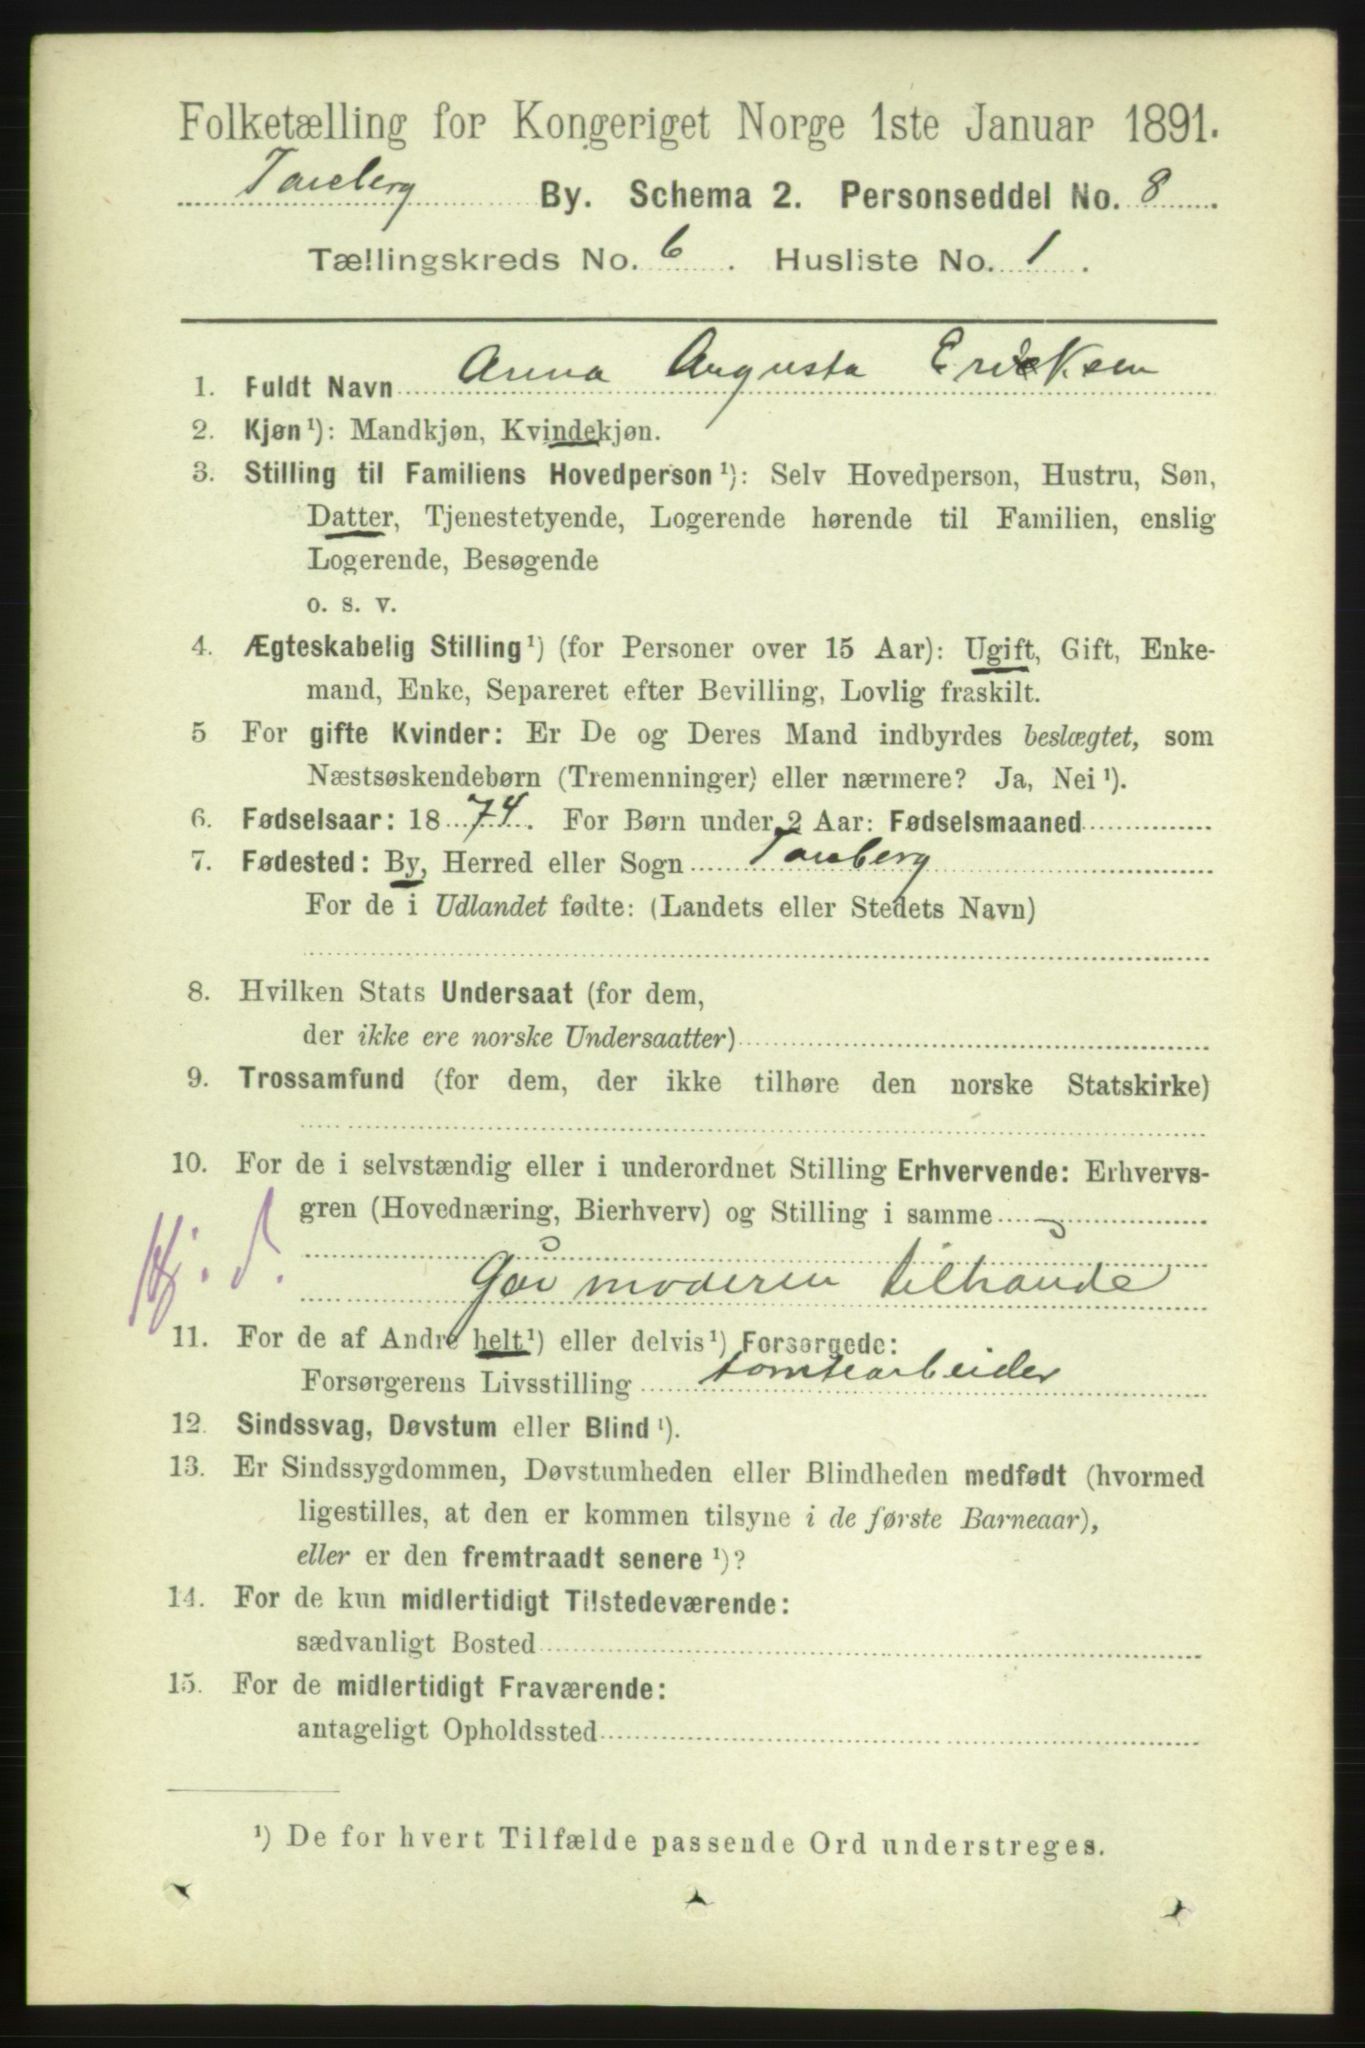 Folketælling for Kongeriget Norge 1ste Januar 1891.
Tønsberg By. Schema 2. Personseddel No. 8
Tællingskreds No. 6. Husliste No. 1.
1. Fuldt Navn Anna Augusta Ericksen
2. Kjøn¹): Mandkjøn, Kvindekjøn.
3. Stilling til Familiens Hovedperson¹): Selv Hovedperson, Hustru, Søn,
Datter, Tjenestetyende, Logerende hørende til Familien, enslig
Logerende, Besøgende
o. s. v.
4. Ægteskabelig Stilling¹) (for Personer over 15 Aar): Ugift, Gift, Enke-
mand, Enke, Separeret efter Bevilling, Lovlig fraskilt.
5 For gifte Kvinder: Er De og Deres Mand indbyrdes beslægtet, som
Næstsøskendebørn (Tremenninger) eller nærmere? Ja, Nei¹).
6. Fødselsaar: 1874. For Børn under 2 Aar: Fødselsmaaned
7. Fødested: By, Herred eller Sogn Tønsberg
For de i Udlandet fødte: (Landets eller Stedets Navn)
8. Hvilken Stats Undersaat (for dem,
der ikke ere norske Undersaatter)
9. Trossamfund (for dem, der ikke tilhøre den norske Statskirke)
10. For de i selvstændig eller i underordnet Stilling Erhvervende: Erhvervs-
gren (Hovednæring, Bierhverv) og Stilling i samme
Hj. d.
Gaar moderen tilhaande
11. For de af Andre helt¹) eller delvis¹) Forsørgede:
Forsørgerens Livsstilling tomtearbeider
12. Sindssvag, Døvstum eller Blind¹).
13. Er Sindssygdommen, Døvstumheden eller Blindheden medfødt (hvormed
ligestilles, at den er kommen tilsyne i de første Barneaar),
eller er den fremtraadt senere¹)?
14. For de kun midlertidigt Tilstedeværende:
sædvanligt Bosted
15. For de midlertidigt Fraværende:
antageligt Opholdssted
¹) De for hvert Tilfælde passende Ord understreges.